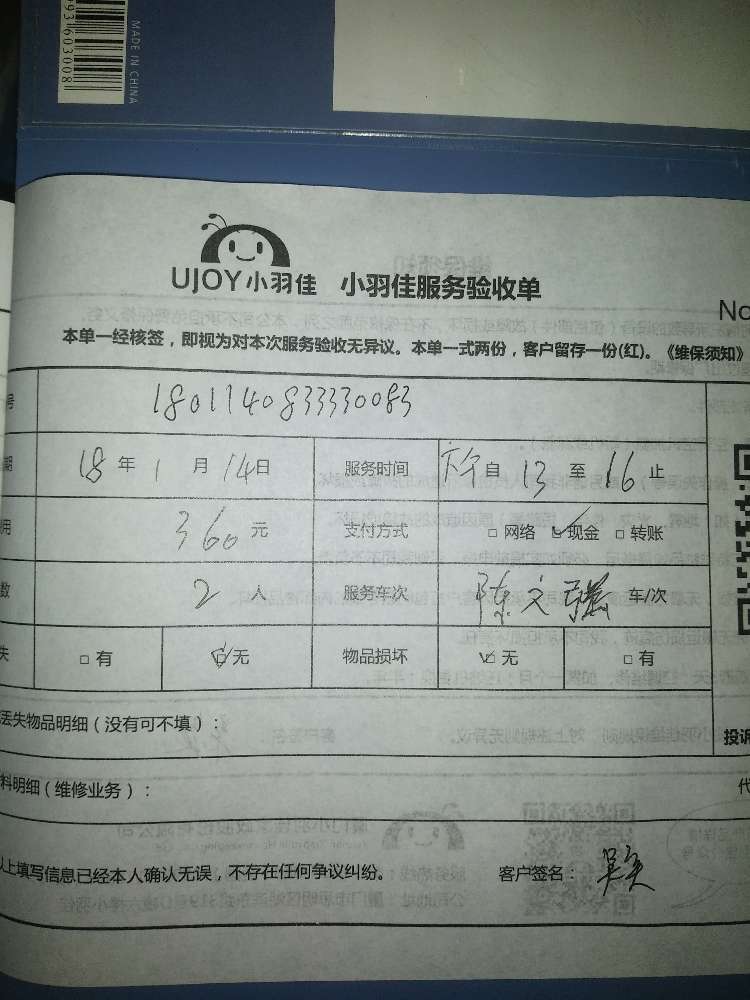 MADE IN CHINA
UJOY小羽佳 小羽佳服务验收单
No
本单一经核签，即视为对本次服务验收无异议。本单一式两份，客户留存一份(红)。《维保须知》
号 180114083330083
期 18年1月14日 服务时间 下午自13至16止
用 360元 支付方式 □网络 ☑现金 □转账
数 2人 服务车次 陈文强 车/次
失 □有 ☑无 物品损坏 ☑无 □有
丢失物品明细（没有可不填）：
投诉
料明细（维修业务）：
以上填写信息已经本人确认无误，不存在任何争议纠纷。 客户签名：